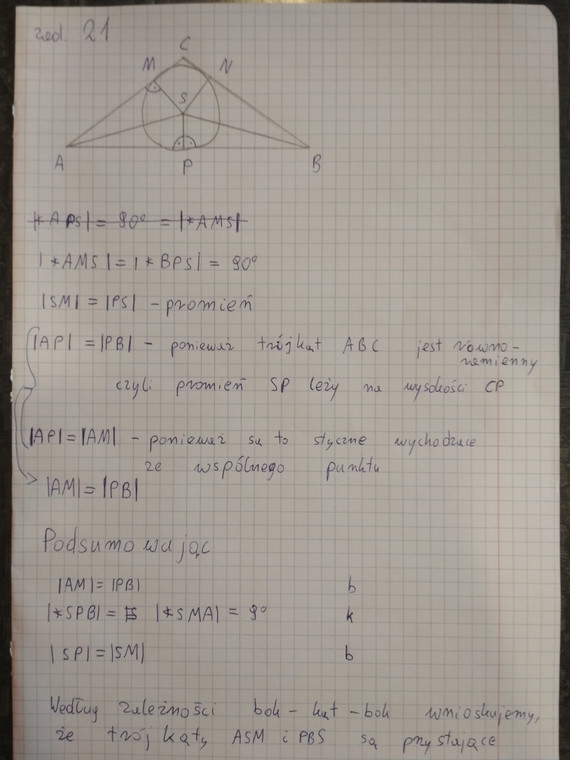 zad. 21
C
M N
S
A P B
|∢APS| = 90° = |∢AMS|
|∢AMS| = |∢BPS| = 90°
|SM| = |PS| - promień
|AP| = |PB| - ponieważ trójkąt ABC jest równo-
ramienny
czyli promień SP leży na wysokości CP
|AP| = |AM| - ponieważ są to styczne wychodzące
ze wspólnego punktu
|AM| = |PB|
Podsumowując
|AM| = |PB| b
|∢SPB| = |∢SMA| = 9° k
|SP| = |SM| b
Według zależności bok - kąt - bok wnioskujemy,
że trójkąty ASM i PBS są przystające